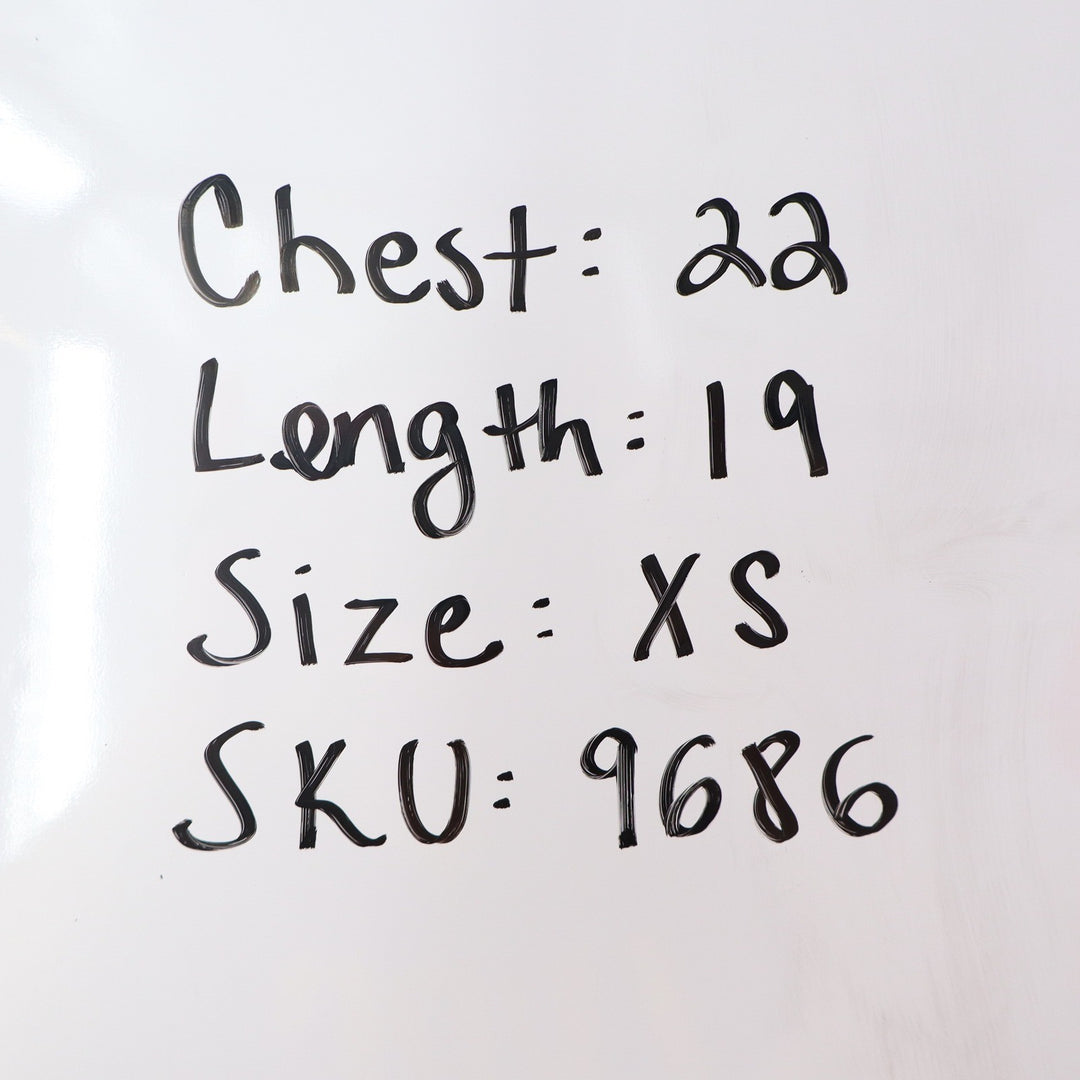 Chest: 22
Length: 19
Size: XS
SKU: 9686